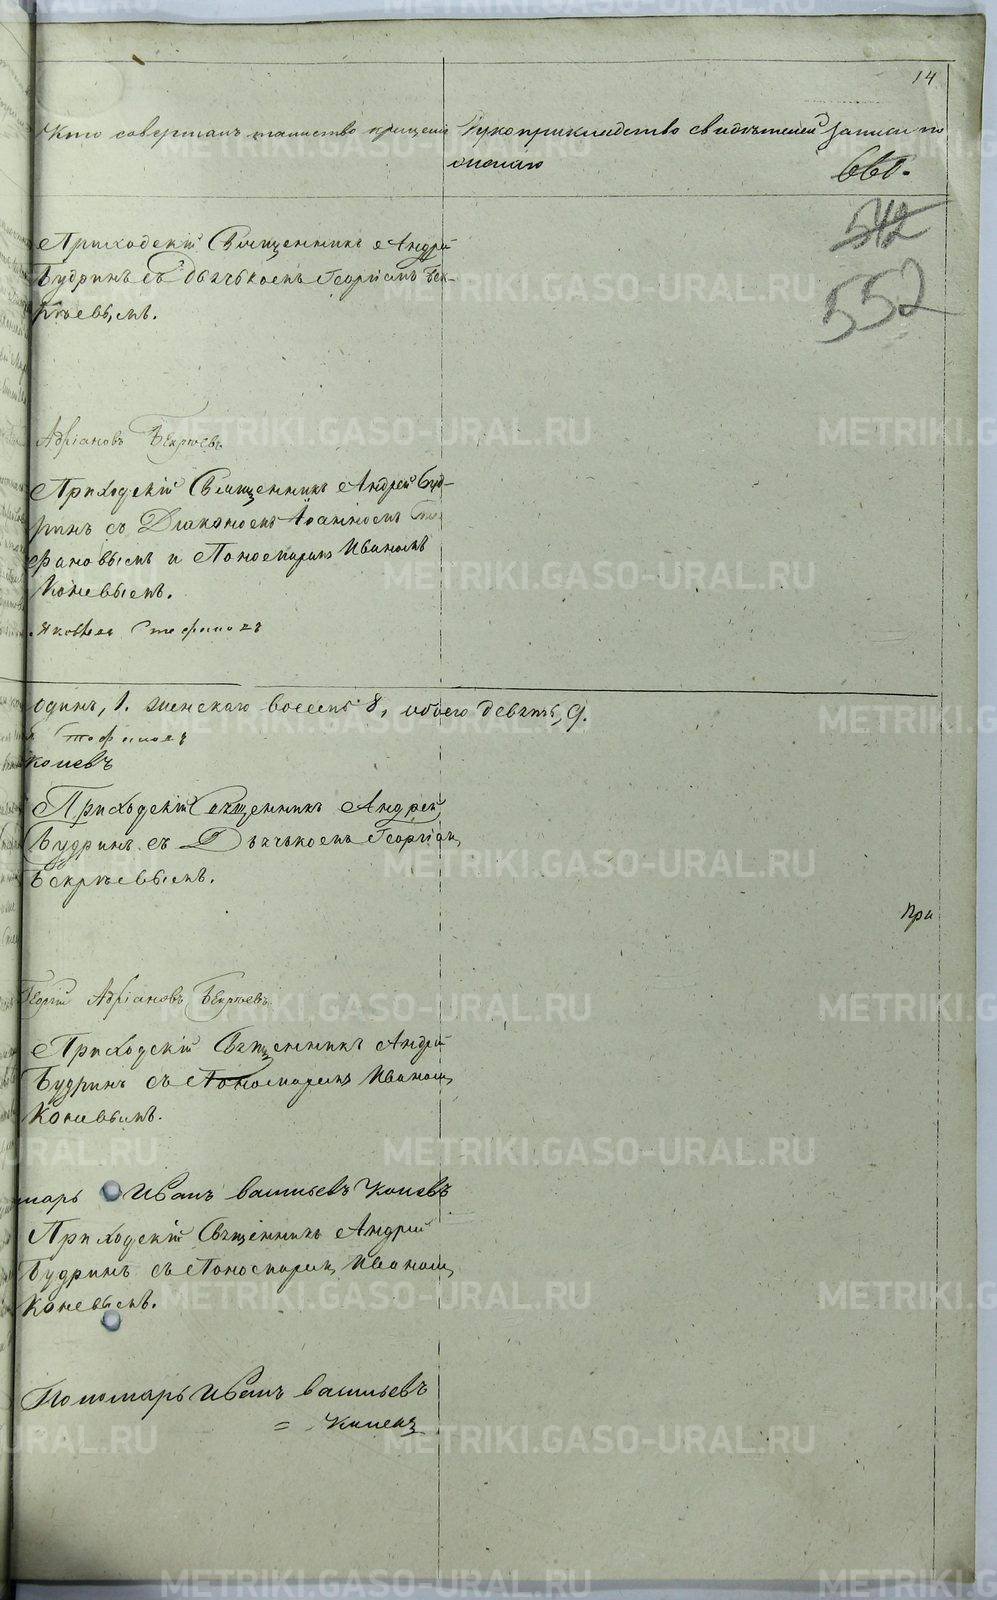 14
Кто совершалъ таинство крещенія Рукоприкладство свидѣтелей записи по
желанію
661.
542
552
Приходскій Священникъ Андрей
Будринъ съ Дьячькомъ Георгіемъ Бек-
рѣевымъ.
Адріановъ Бекрѣевъ
Приходскій Священникъ Андрей Буд-
ринъ съ Діакономъ Іоанномъ Сте
фановымъ и Пономаремъ Иваномъ
Коневымъ.
Яковлевъ Стефановъ
одинъ, 1. женскаго восемь 8, обоего девять, 9.
Стефановъ
Коневъ
Приходскій Священникъ Андрей
Будринъ съ Дьячькомъ Георгіем
Бекрѣевымъ.
При
Георгій Адріановъ Бекрѣевъ
Приходскій Священникъ Андрей
Будринъ съ Пономаремъ Иваном
Коневымъ.
марь Иванъ Васильевъ Коневъ
Приходскій Священникъ Андрей
Будринъ съ Пономарем Иваном
Коневымъ.
Пономарь Иванъ Васильевъ
= Коневъ
METRIKI.GASO-URAL.RU